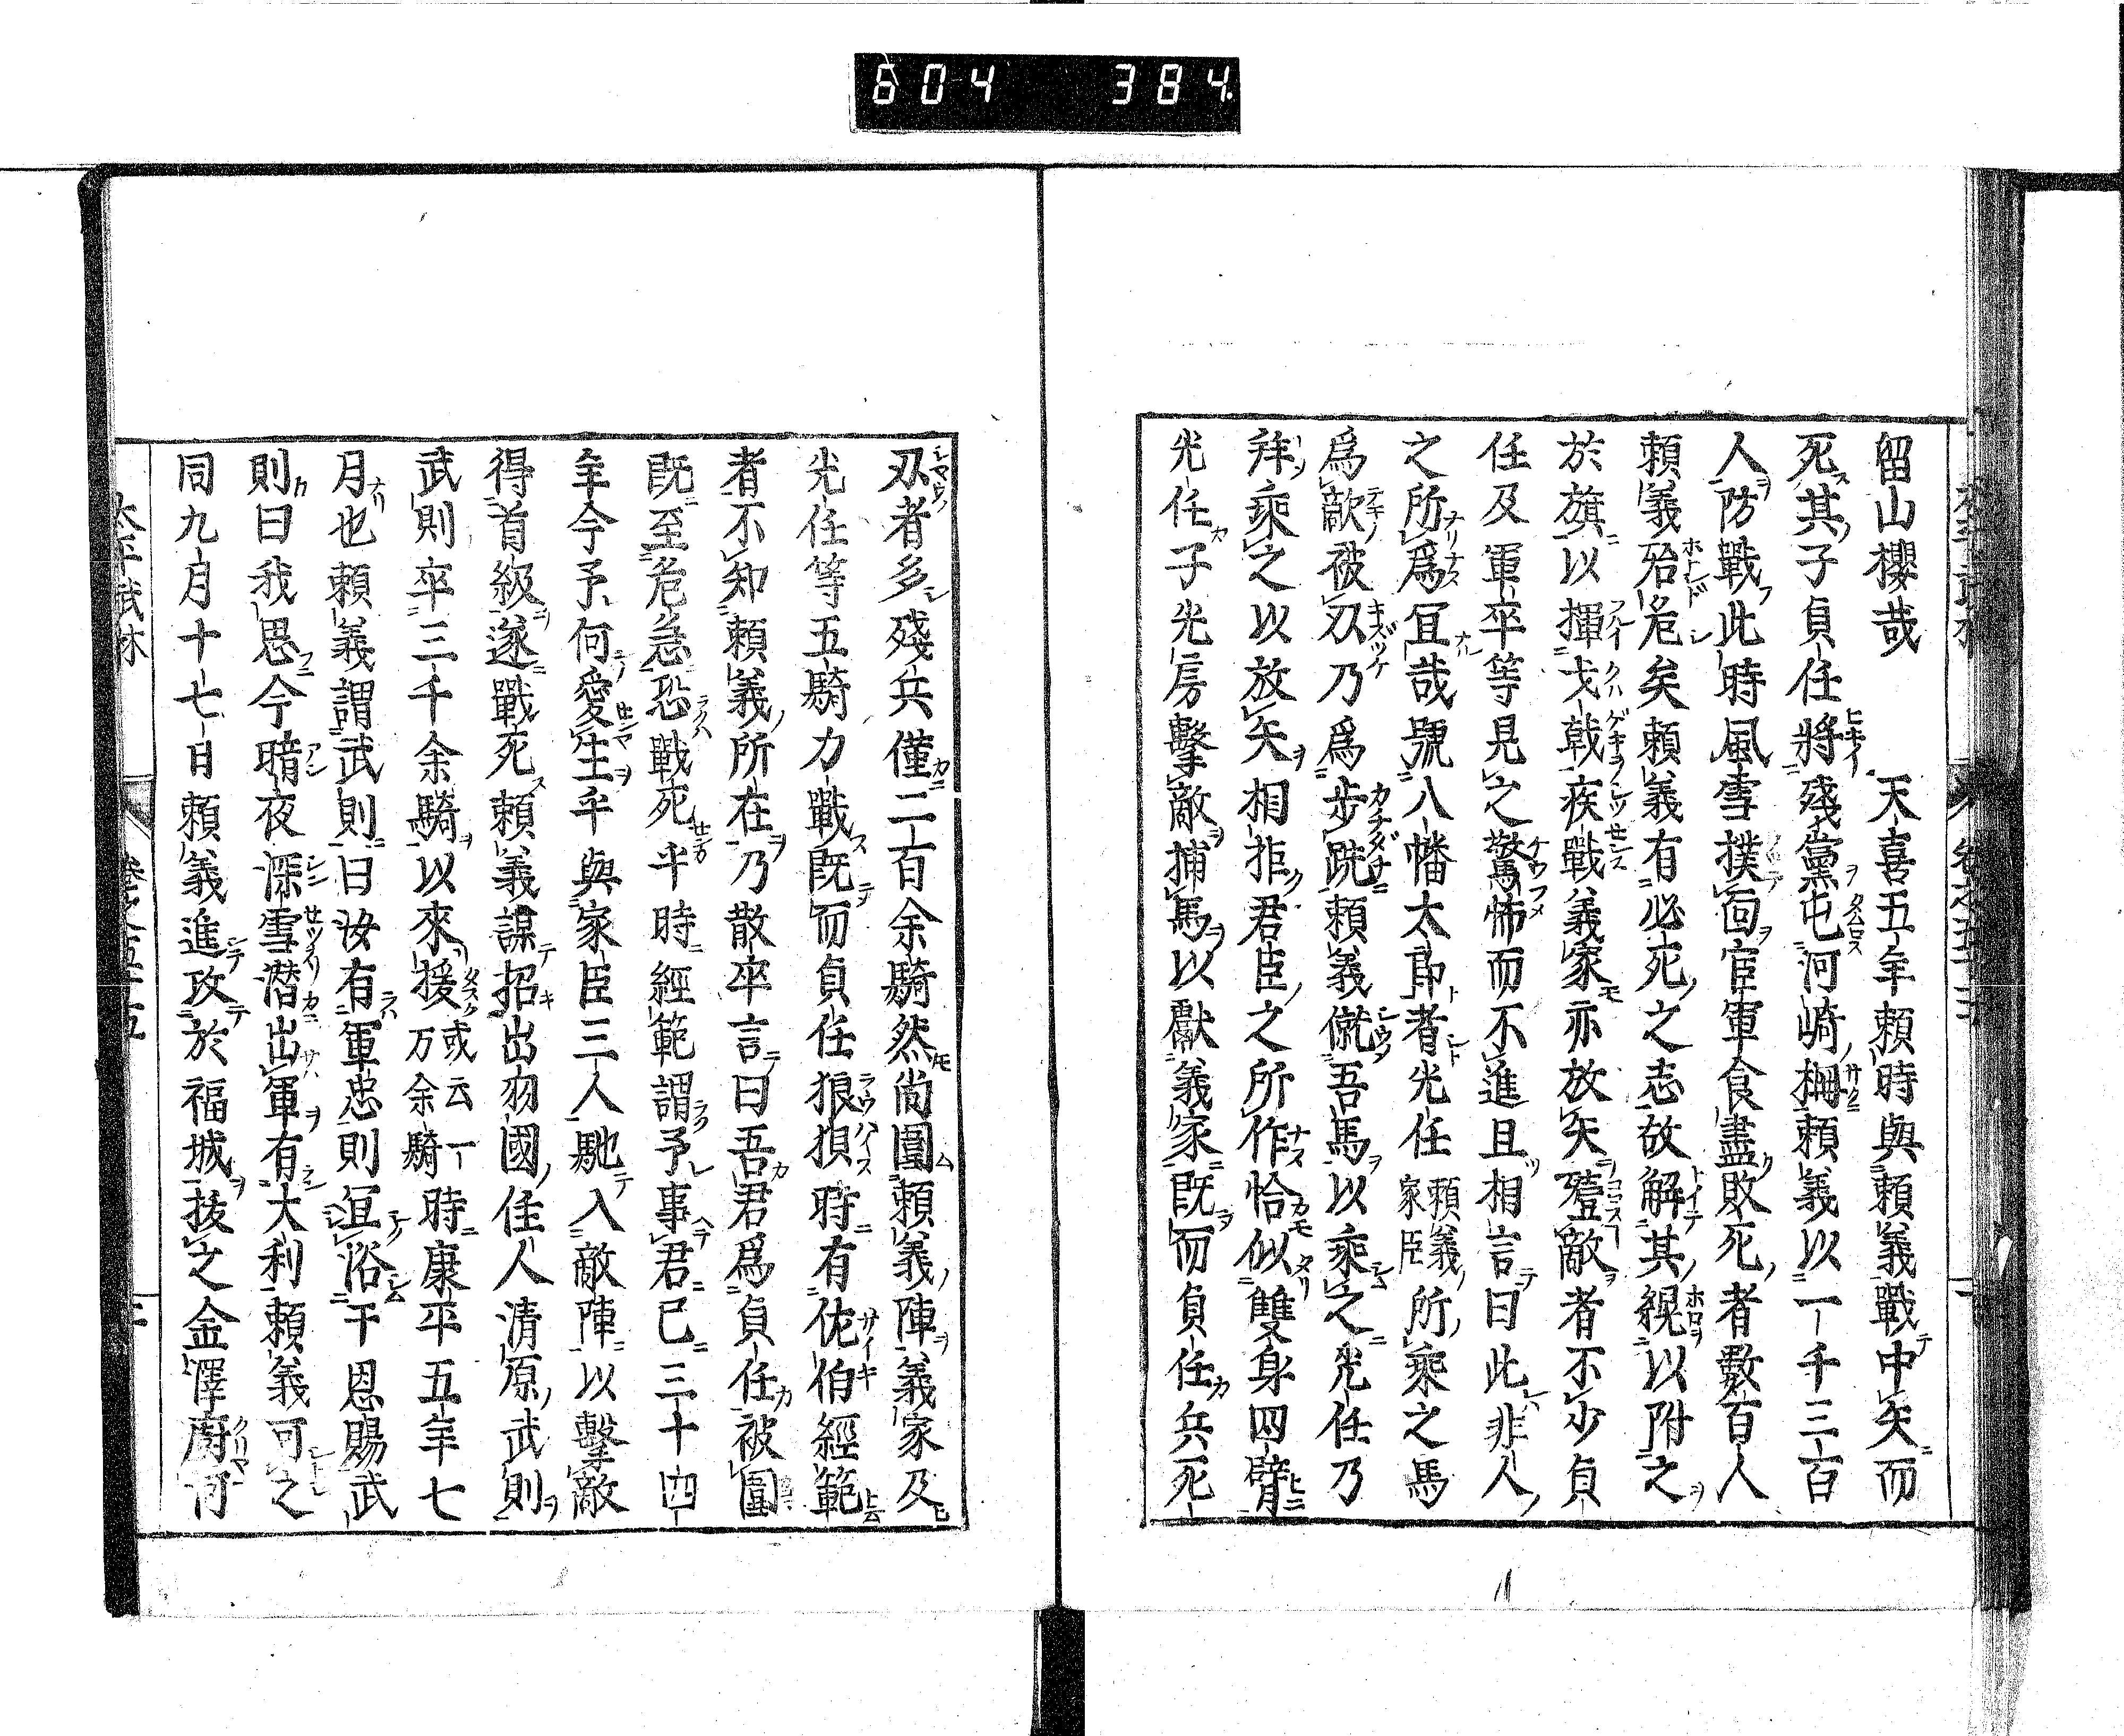 604 384
留山櫻哉 天喜五年頼時與頼義戰中矢而
死其子貞任將殘黨屯河崎柵頼義以一千三百
人防戰此時風雪撲面官軍食盡敗死者數百人
頼義殆危矣頼義有必死之志故解其緄以附之
於旗以揮戈戟疾戰義家亦放矢殪敵者不少貞
任及軍卒等見之驚怖而不進且相言曰此非人
之所爲冝哉號八幡太郎者光任頼義家臣所乘之馬
爲敵被刄乃爲歩跣頼義僦吾馬以乘之光任乃
拜乘之以放矢相拒君臣之所作恰似雙身四臂
光任子光房擊敵捕馬以獻義家既而貞任兵死
刄者多殘兵僅二百余騎然尚圍頼義陣義家及
光任等五騎力戰既而貞任狼狽時有佐伯經範
者不知頼義所在乃散卒言曰吾君爲貞任被圍
既至危急恐戰死乎時經範謂予事君已三十四
年今予何愛生乎與家臣三人馳入敵陣以擊敵
得首級遂戰死頼義謀招出羽國住人清原武則
武則卒三千余騎以來援或云一万余騎時康平五年七
月也頼義謂武則曰汝有軍忠則冝浴于恩賜武
則曰我思今暗夜深雪潜出軍有大利頼義可之
同九月十七日頼義進攻於福城拔之金澤廚河